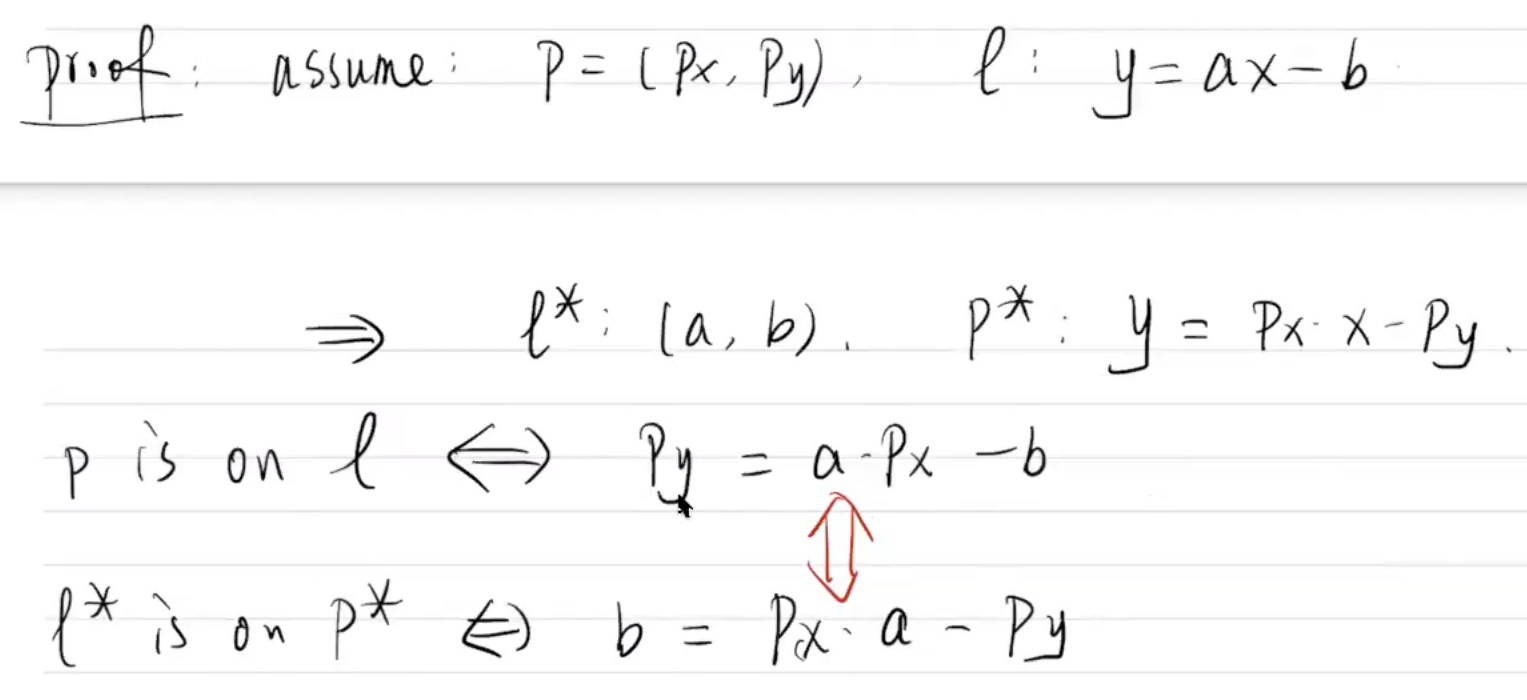 Proof: assume: P = (Px, Py), l: y = ax - b
⇒ l*: (a, b). P*: y = Px·x - Py.
p is on l ⇔ Py = a·Px - b
l* is on p* ⇔ b = Px·a - Py